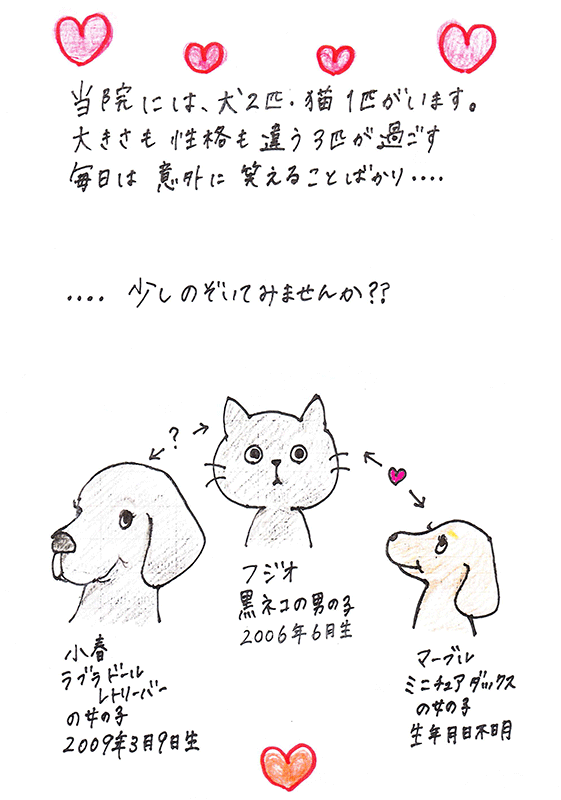 当院には、犬2匹・猫1匹がいます。
大きさも 性格も 違う 3匹が 過ごす
毎日は 意外に 笑えることばかり‥‥
‥‥ 少しのぞいてみませんか??
?
フジオ
黒ネコの男の子
2006年6月生
小春
ラブラドール
レトリーバー
の女の子
2009年3月9日生
マーブル
ミニチュアダックス
の女の子
生年月日不明